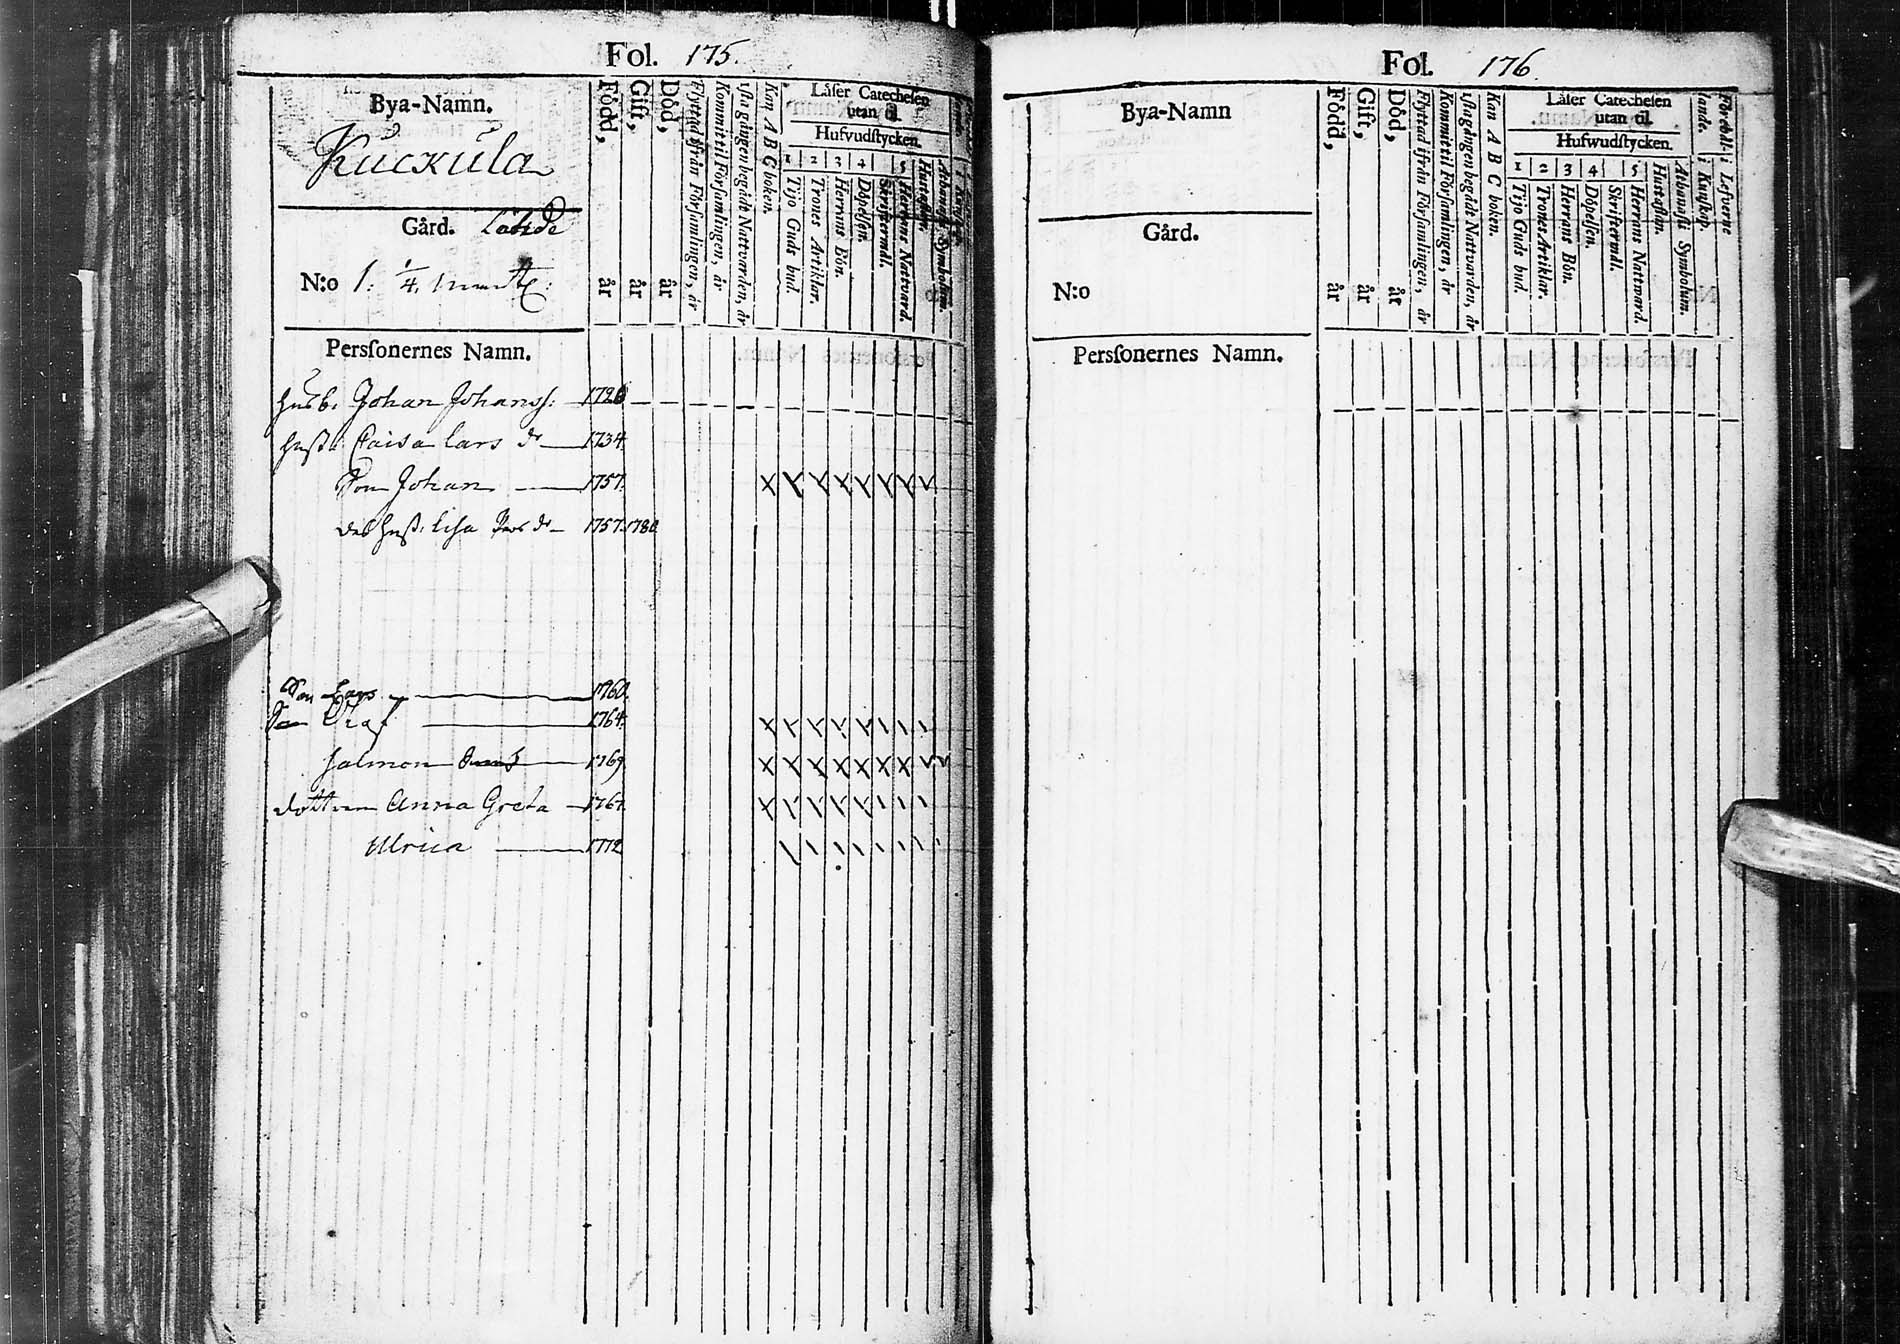 Fol. 175.
Bya-Namn.
Kuckula
Gård. Lähde
N:o 1. 1/4. mantl:
Född, år
Gift, år
Död, år
Flyttad ifrån Församlingen, år
Kommit til Församlingen, år
1sta gången begådt Nattvarden, år
Kan A B C boken.
Låser Catechesen
utan til.
Hufvudstycken.
1 2 3 4 5
Tijo Guds bud.
Trones Artiklar.
Herrans Bön.
Döpelsen.
Skriftermål.
Herrans Nattvard.
Hustaflan.
Athanasii Symbolum.
Persſonernes Namn.
Husb. Johan Johanss: 1726
Hust. Caisa Lars dr 1734.
Son Johan 1757.
des hust. Lisa dr 1757. 1780
Son Lars 1760.
Son Olaf 1764.
Salmon 1769.
Dottren Anna Greta 1767.
Ulrica 1772
Fol. 176.
Bya-Namn
Gård.
N:o
Född, år
Gift, år
Död, år
Flyttad ifrån Församlingen, år
Kommit til Församlingen, år
1sta gången begådt Nattvarden, år
Kan A B C boken.
Låser Catechesen
utan til.
Hufwudstycken.
1 2 3 4 5
Tijo Guds bud.
Trones Artiklar.
Herrans Bön.
Döpelsen.
Skriftermål.
Herrans Nattvard.
Hustaflan.
Athanasii Symbolum.
Förehål-
lande.
i Kunskap.
i Lefverne
Persſonernes Namn.